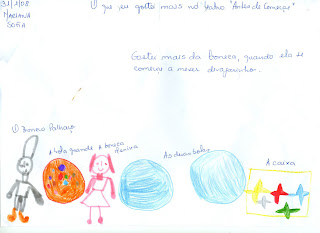 31/1/08
Mariana
Sofia
O que eu gostei mais no palco "Antes de Começar"
Gostei mais da boneca, quando ela se
começou a mexer devagarinho.
O Boneco Palhaço
A bola grande
A boneca
menina
As duas bolas
A caixa